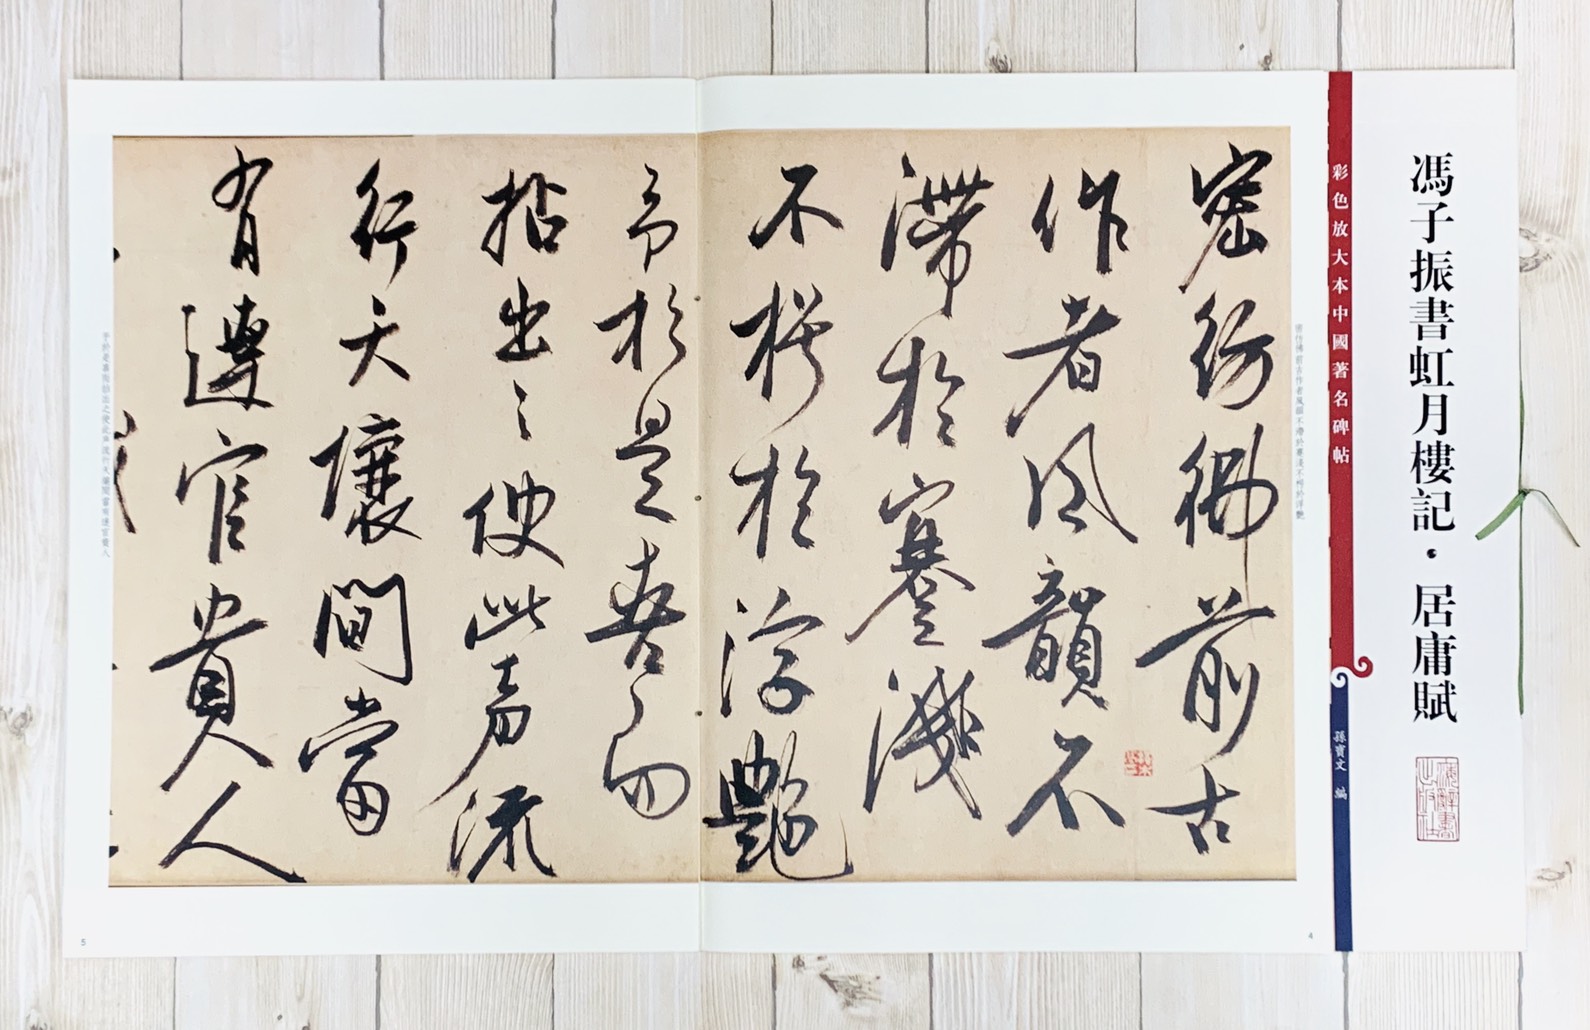 馮子振書虹月樓記·居庸賦
彩色放大本中國著名碑帖
孫寶文 編
密彷彿前古
作者風韻不
滯於蹇淺
不於浮艷
予於是喜而
拈出之使此流
行天壤間當
有達官貴人人
4
5